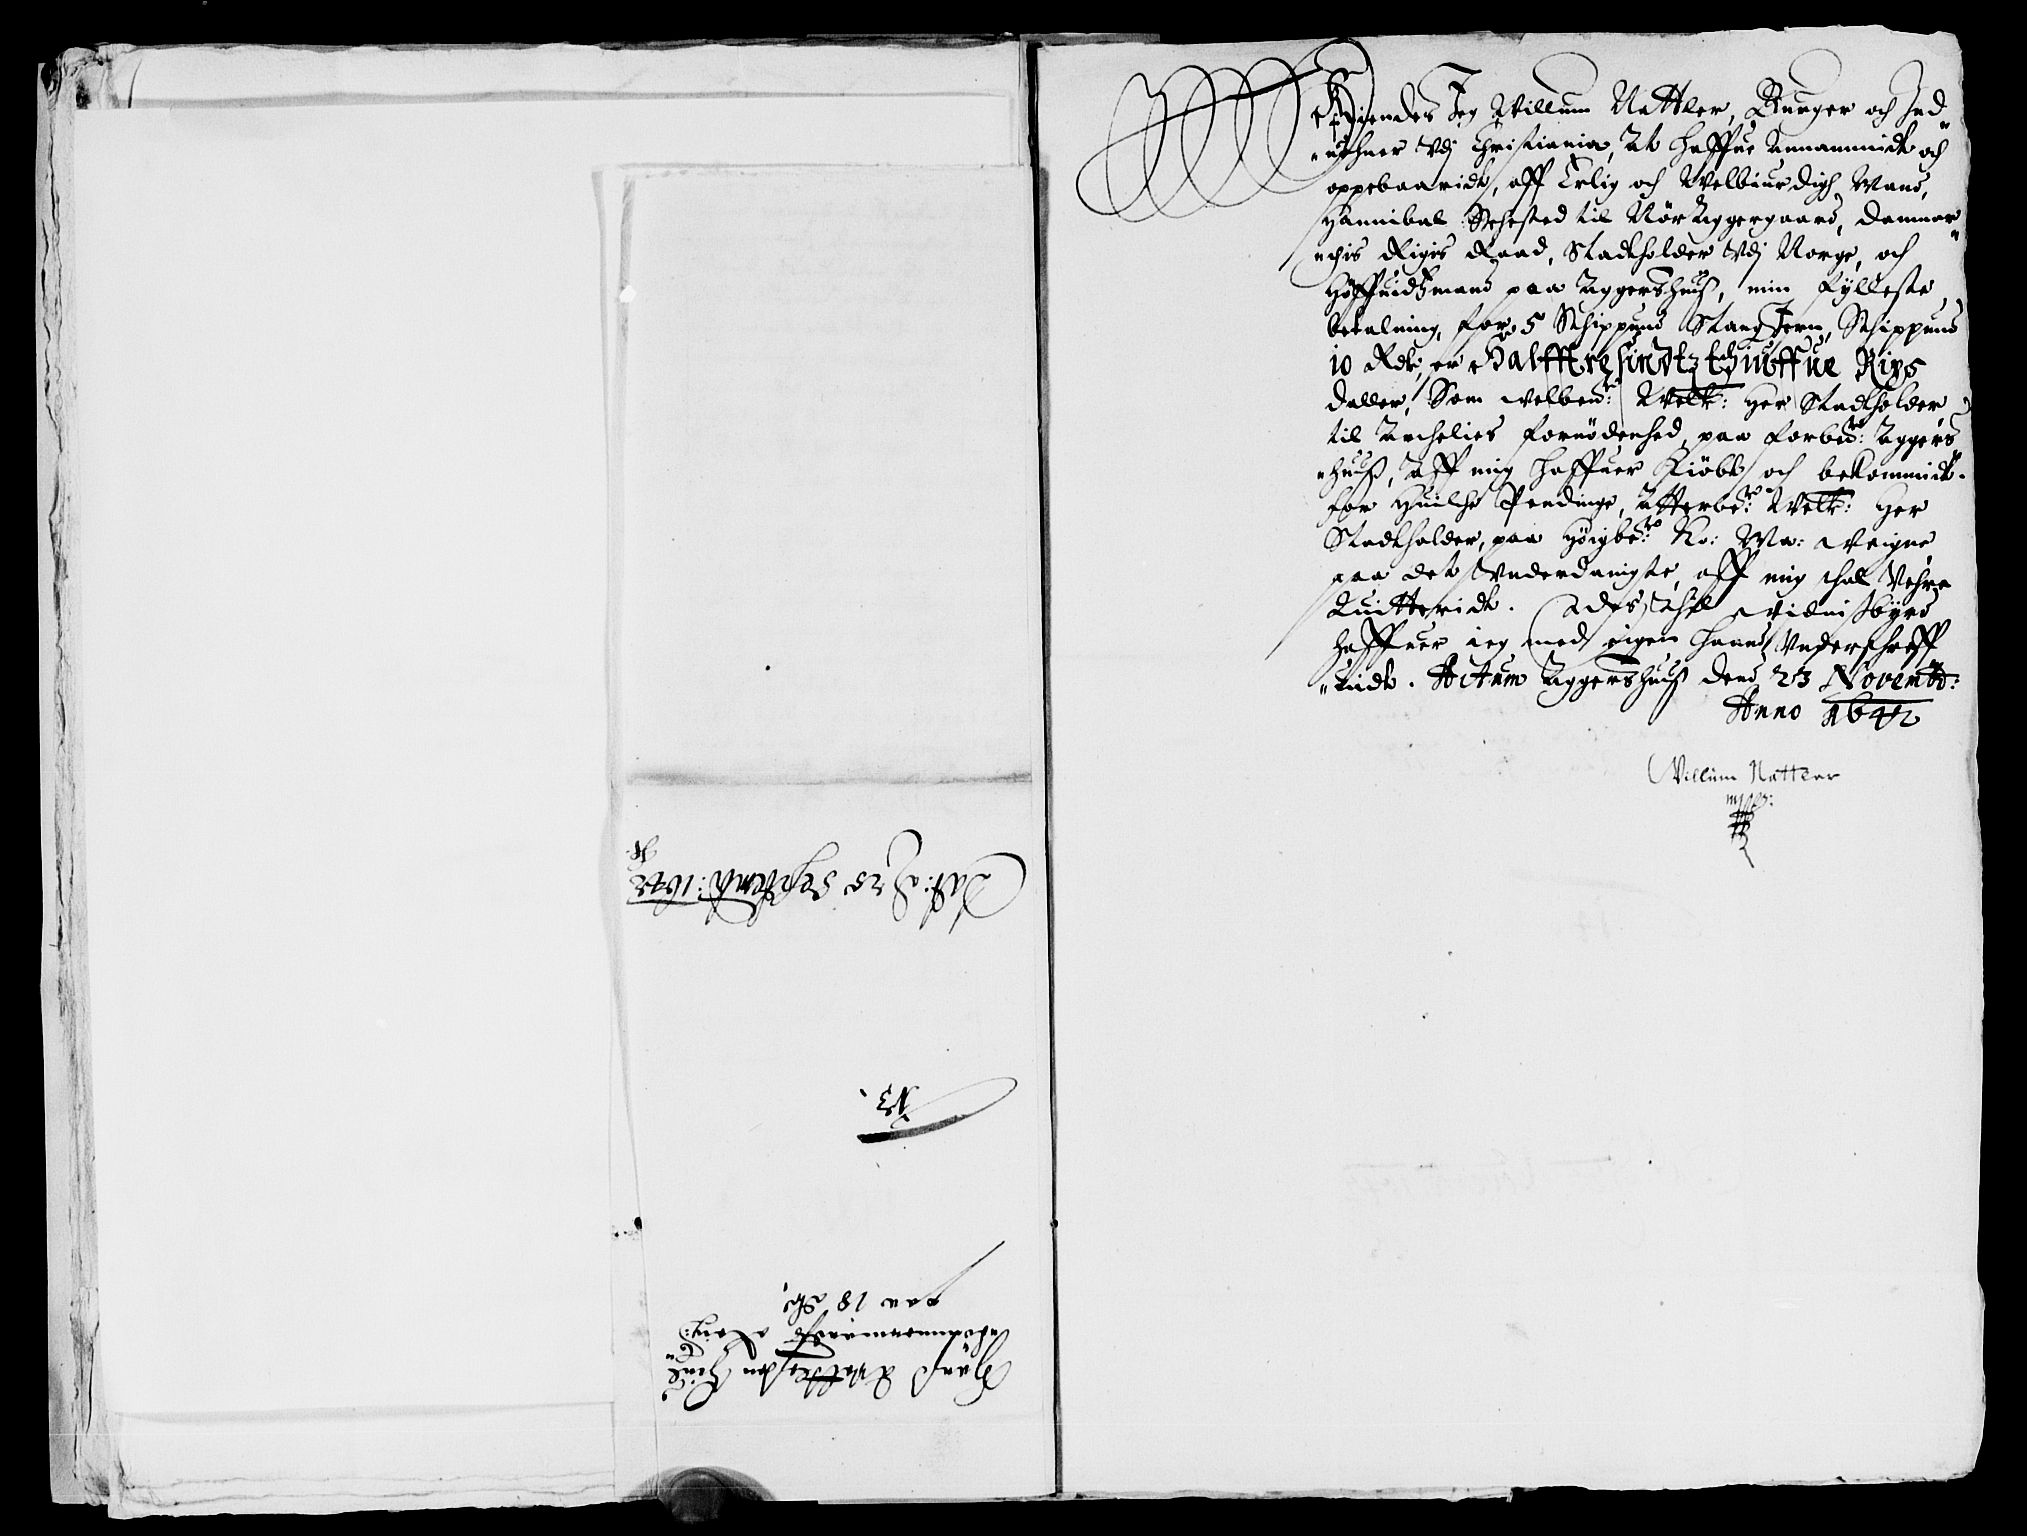 Kiendes Jeg Willum Nattler, Burger och Ind¬
¬uohner Vdj Christiania, At haffue Annammidt och
oppebaaridt, aff Erlig och Welbiurdigh Mand,
Hannibal Sehested til Nör Aggergaard, Danmar¬
¬chis Rigis Raad, Stadtholder Vdj Norge, och
Höffuidtzmand paa Aggershuus, min fylleste
betalning, for 5 Schippund Stang Jern, Schippund
10 Rdr, er Halfftresindtztÿuffue Rixs
daller, Som velbem:te Welb: Her Stadtholder
til Archelies fornödenhed, paa forbe:te Aggers
¬huus, Aff mig haffuer Kiöbt och bekommidt.
for Huilche Pendinge, Atterbe:te Welb: Her
Stadtholder, paa Höigbe:te Ko: Ma: Weigne
paa det Vnderdanigste, aff mig schal Vehre
Quitteridt. Ades Thil Vidnisbyrd
haffuer ieg med eigen haand Vnderschreff
¬uidt. Actum Aggershuus dend 23 Novemb:
Anno 1642
Willum Nattler
mpp:
Dat: d 20 Septemb: 1642
N 3.
paa 18 Rdr